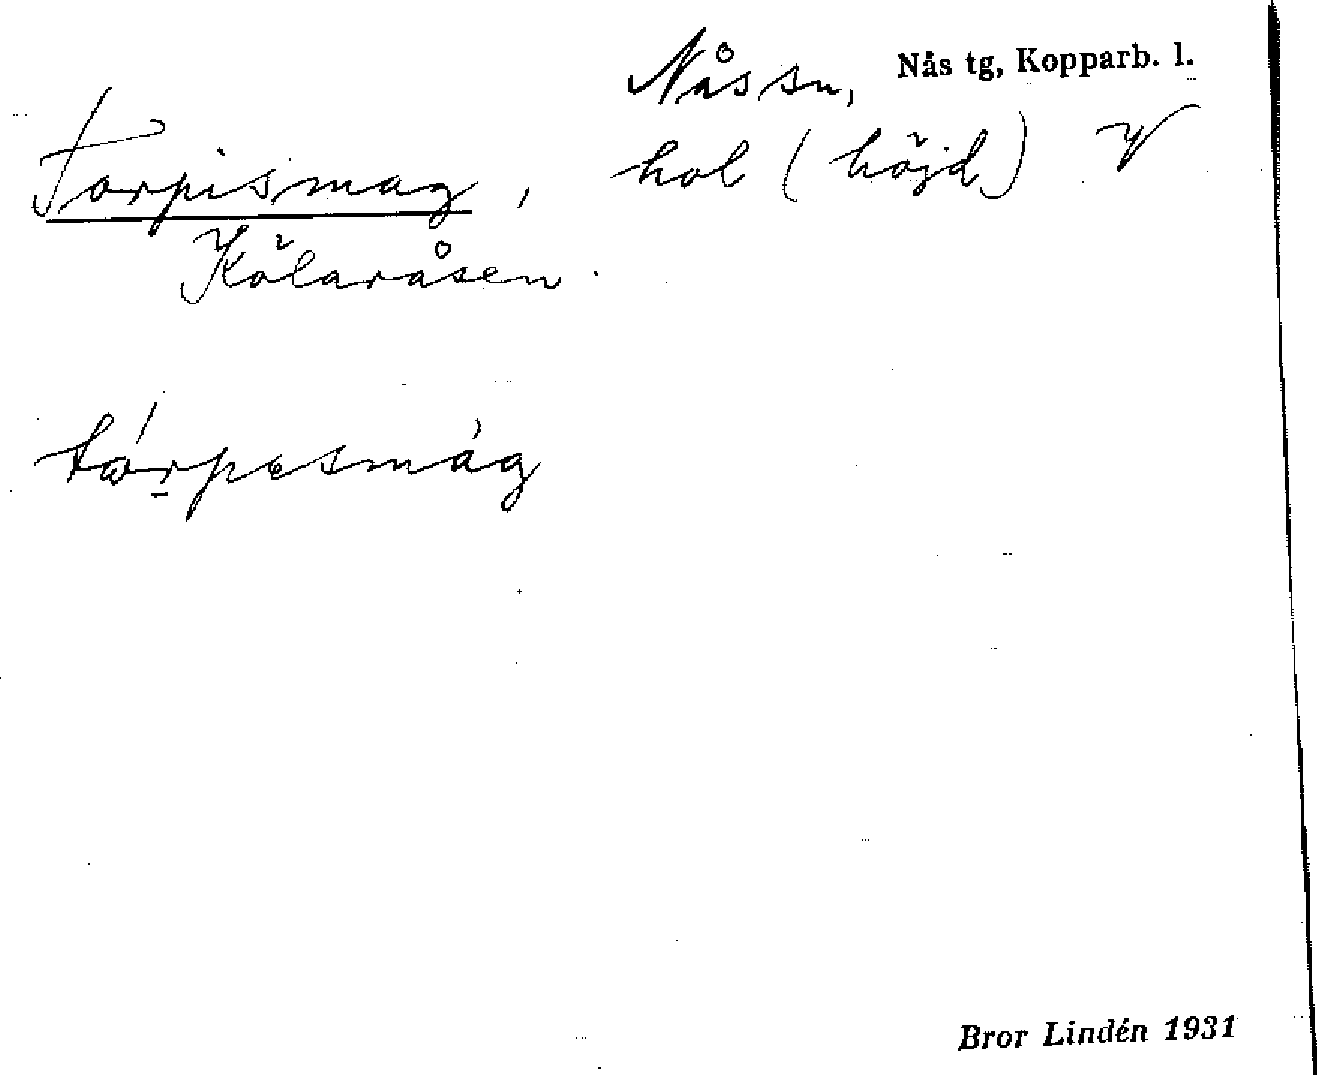 Nås sn, Nås tg, Kopparb. l.
Torpismag, hol (höjd) V
Kölaråsen.
tårpesmág
Bror Lindén 1931